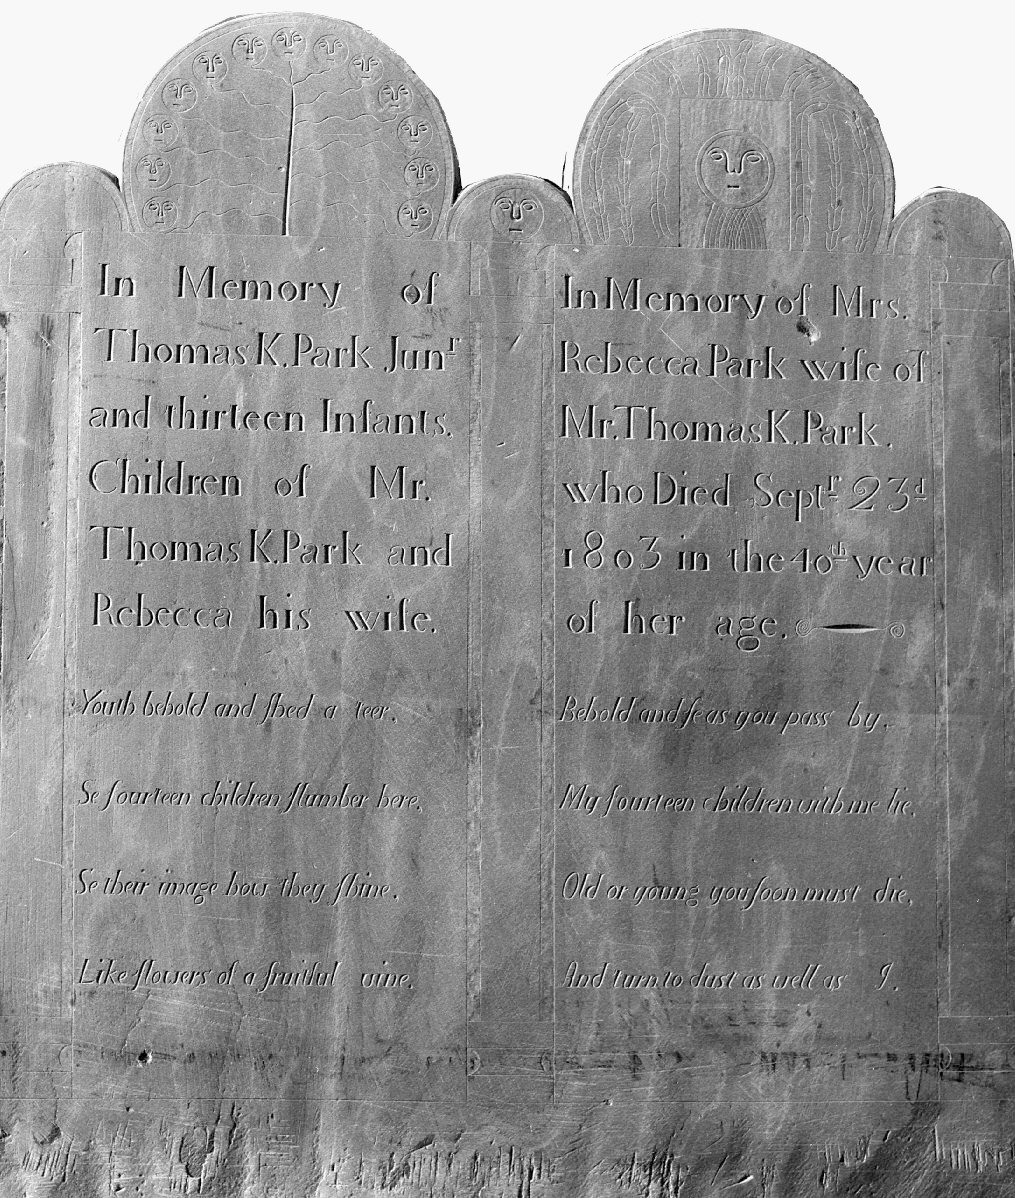 In Memory of
Thomas K. Park Junr
and thirteen Infants.
Children of Mr.
Thomas K. Park and
Rebecca his wife.
Youth behold and shed a teer.
Se fourteen children slumber here.
Se their image how they shine.
Like flowers of a fruitful vine.
In Memory of Mrs.
Rebecca Park wife of
Mr. Thomas K. Park.
who Died Septr 23d
1803 in the 40th year
of her age.
Behold and se as you pass by.
My fourteen children with me lie.
Old or young you soon must die.
And turn to dust as well as I.